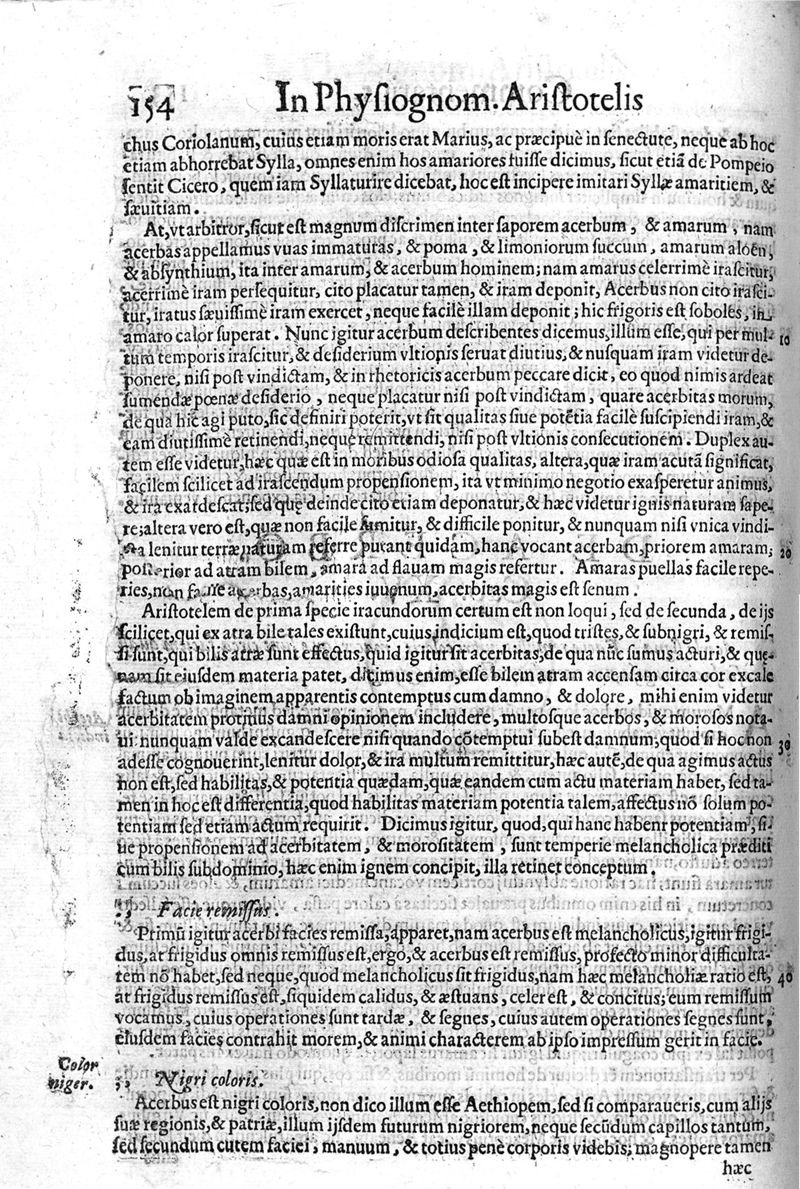 154 In Physiognom. Aristotelis
chus Coriolanum, cuius etiam moris erat Marius, ac præcipuè in senectute, neque ab hoc
etiam abhorrebat Sylla, omnes enim hos amariores fuisse dicimus, sicut etiã de Pompeio
sentit Cicero, quem iam Syllaturire dicebat, hoc est incipere imitari Syllæ amaritiem, &
sæuitiam.
At, vt arbitror, sicut est magnum discrimen inter saporem acerbum, & amarum, nam
acerbas appellamus vuas immaturas, & poma, & limoniorum succum, amarum aloen,
& absynthium, ita inter amarum, & acerbum hominem; nam amarus celerrimè irascitur,
acerrimè iram persequitur, cito placatur tamen, & iram deponit, Acerbus non cito irasci-
tur, iratus sæuissimè iram exercet, neque facilè illam deponit; hic frigoris est soboles, in
amaro calor superat. Nunc igitur acerbum describentes dicemus, illum esse, qui per mul- 10
tum temporis irascitur, & desiderium vltionis seruat diutius, & nusquam iram videtur de-
ponere, nisi post vindictam, & in rhetoricis acerbum peccare dicit, eo quod nimis ardeat
sumendæ pœnæ desiderio, neque placatur nisi post vindictam, quare acerbitas morum,
de qua hic agi puto, sic definiri poterit, vt sit qualitas siue potẽtia facilè suscipiendi iram, &
eam diutissimè retinendi, neque remittendi, nisi post vltionis consecutionem. Duplex au-
tem esse videtur, hæc quæ est in moribus odiosa qualitas, altera, quæ iram acutã significat,
facilem scilicet ad irascendum propensionem, ità vt minimo negotio exasperetur animus,
& ira exardescat; sed que deinde cito etiam deponatur, & hæc videtur ignis naturam sape-
re; altera vero est, quæ non facile sumitur, & difficile ponitur, & nunquam nisi vnica vindi-
cta lenitur terræ naturam referre putant quidam, hanc vocant acerbam, priorem amaram; 20
posterior ad atram bilem, amara ad flauam magis refertur. Amaras puellas facile repe-
ries, non facile acerbas, amarities iuuenum, acerbitas magis est senum.
Aristotelem de prima specie iracundorum certum est non loqui, sed de secunda, de ijs
scilicet, qui ex atra bile tales existunt, cuius indicium est, quod tristes, & subnigri, & remis-
si sunt, qui bilis atræ sunt effectus, quid igitur sit acerbitas, de qua nũc sumus acturi, & quæ-
nam sit eiusdem materia patet, dicimus enim, esse bilem atram accensam circa cor excale
factum ob imaginem apparentis contemptus cum damno, & dolore, mihi enim videtur
acerbitatem protinus damni opinionem includere, multosque acerbos, & morosos nota-
ui nunquam valde excandescere nisi quando cõtemptui subest damnum; quod si hoc non 30
adesse cognouerint, lenitur dolor, & ira multum remittitur, hæc autẽ, de qua agimus actus
non est, sed habilitas, & potentia quædam, quæ eandem cum actu materiam habet, sed ta-
men in hoc est differentia, quod habilitas materiam potentia talem, affectus nõ solum po-
tentiam sed etiam actum requirit. Dicimus igitur, quod, qui hanc habent potentiam, si-
ue propensionem ad acerbitatem, & morositatem, sunt temperie melancholica præditi
cum bilis subdominio, hæc enim ignem concipit, illa retinet conceptum.
;; Facie remissus.
Primũ igitur acerbi facies remissa, apparet, nam acerbus est melancholicus, igitur frigi-
dus, at frigidus omnis remissus est, ergo, & acerbus est remissus, profecto minor difficulta-
tem nõ habet, sed neque, quod melancholicus sit frigidus, nam hæc melancholiæ ratio est, 40
at frigidus remissus est, siquidem calidus, & æstuans, celer est, & concitus; eum remissum
vocamus, cuius operationes sunt tardæ, & segnes, cuius autem operationes segnes sunt,
eiusdem facies contrahit morem, & animi characterem ab ipso impressum gerit in facie.
Color
niger.
;; Nigri coloris.
Acerbus est nigri coloris, non dico illum esse Aethiopem, sed si comparaueris, cum alijs
suæ regionis, & patriæ, illum ijsdem futurum nigriorem, neque secũdum capillos tantum,
sed secundum cutem faciei, manuum, & totius penè corporis videbis; magnopere tamen
hæc